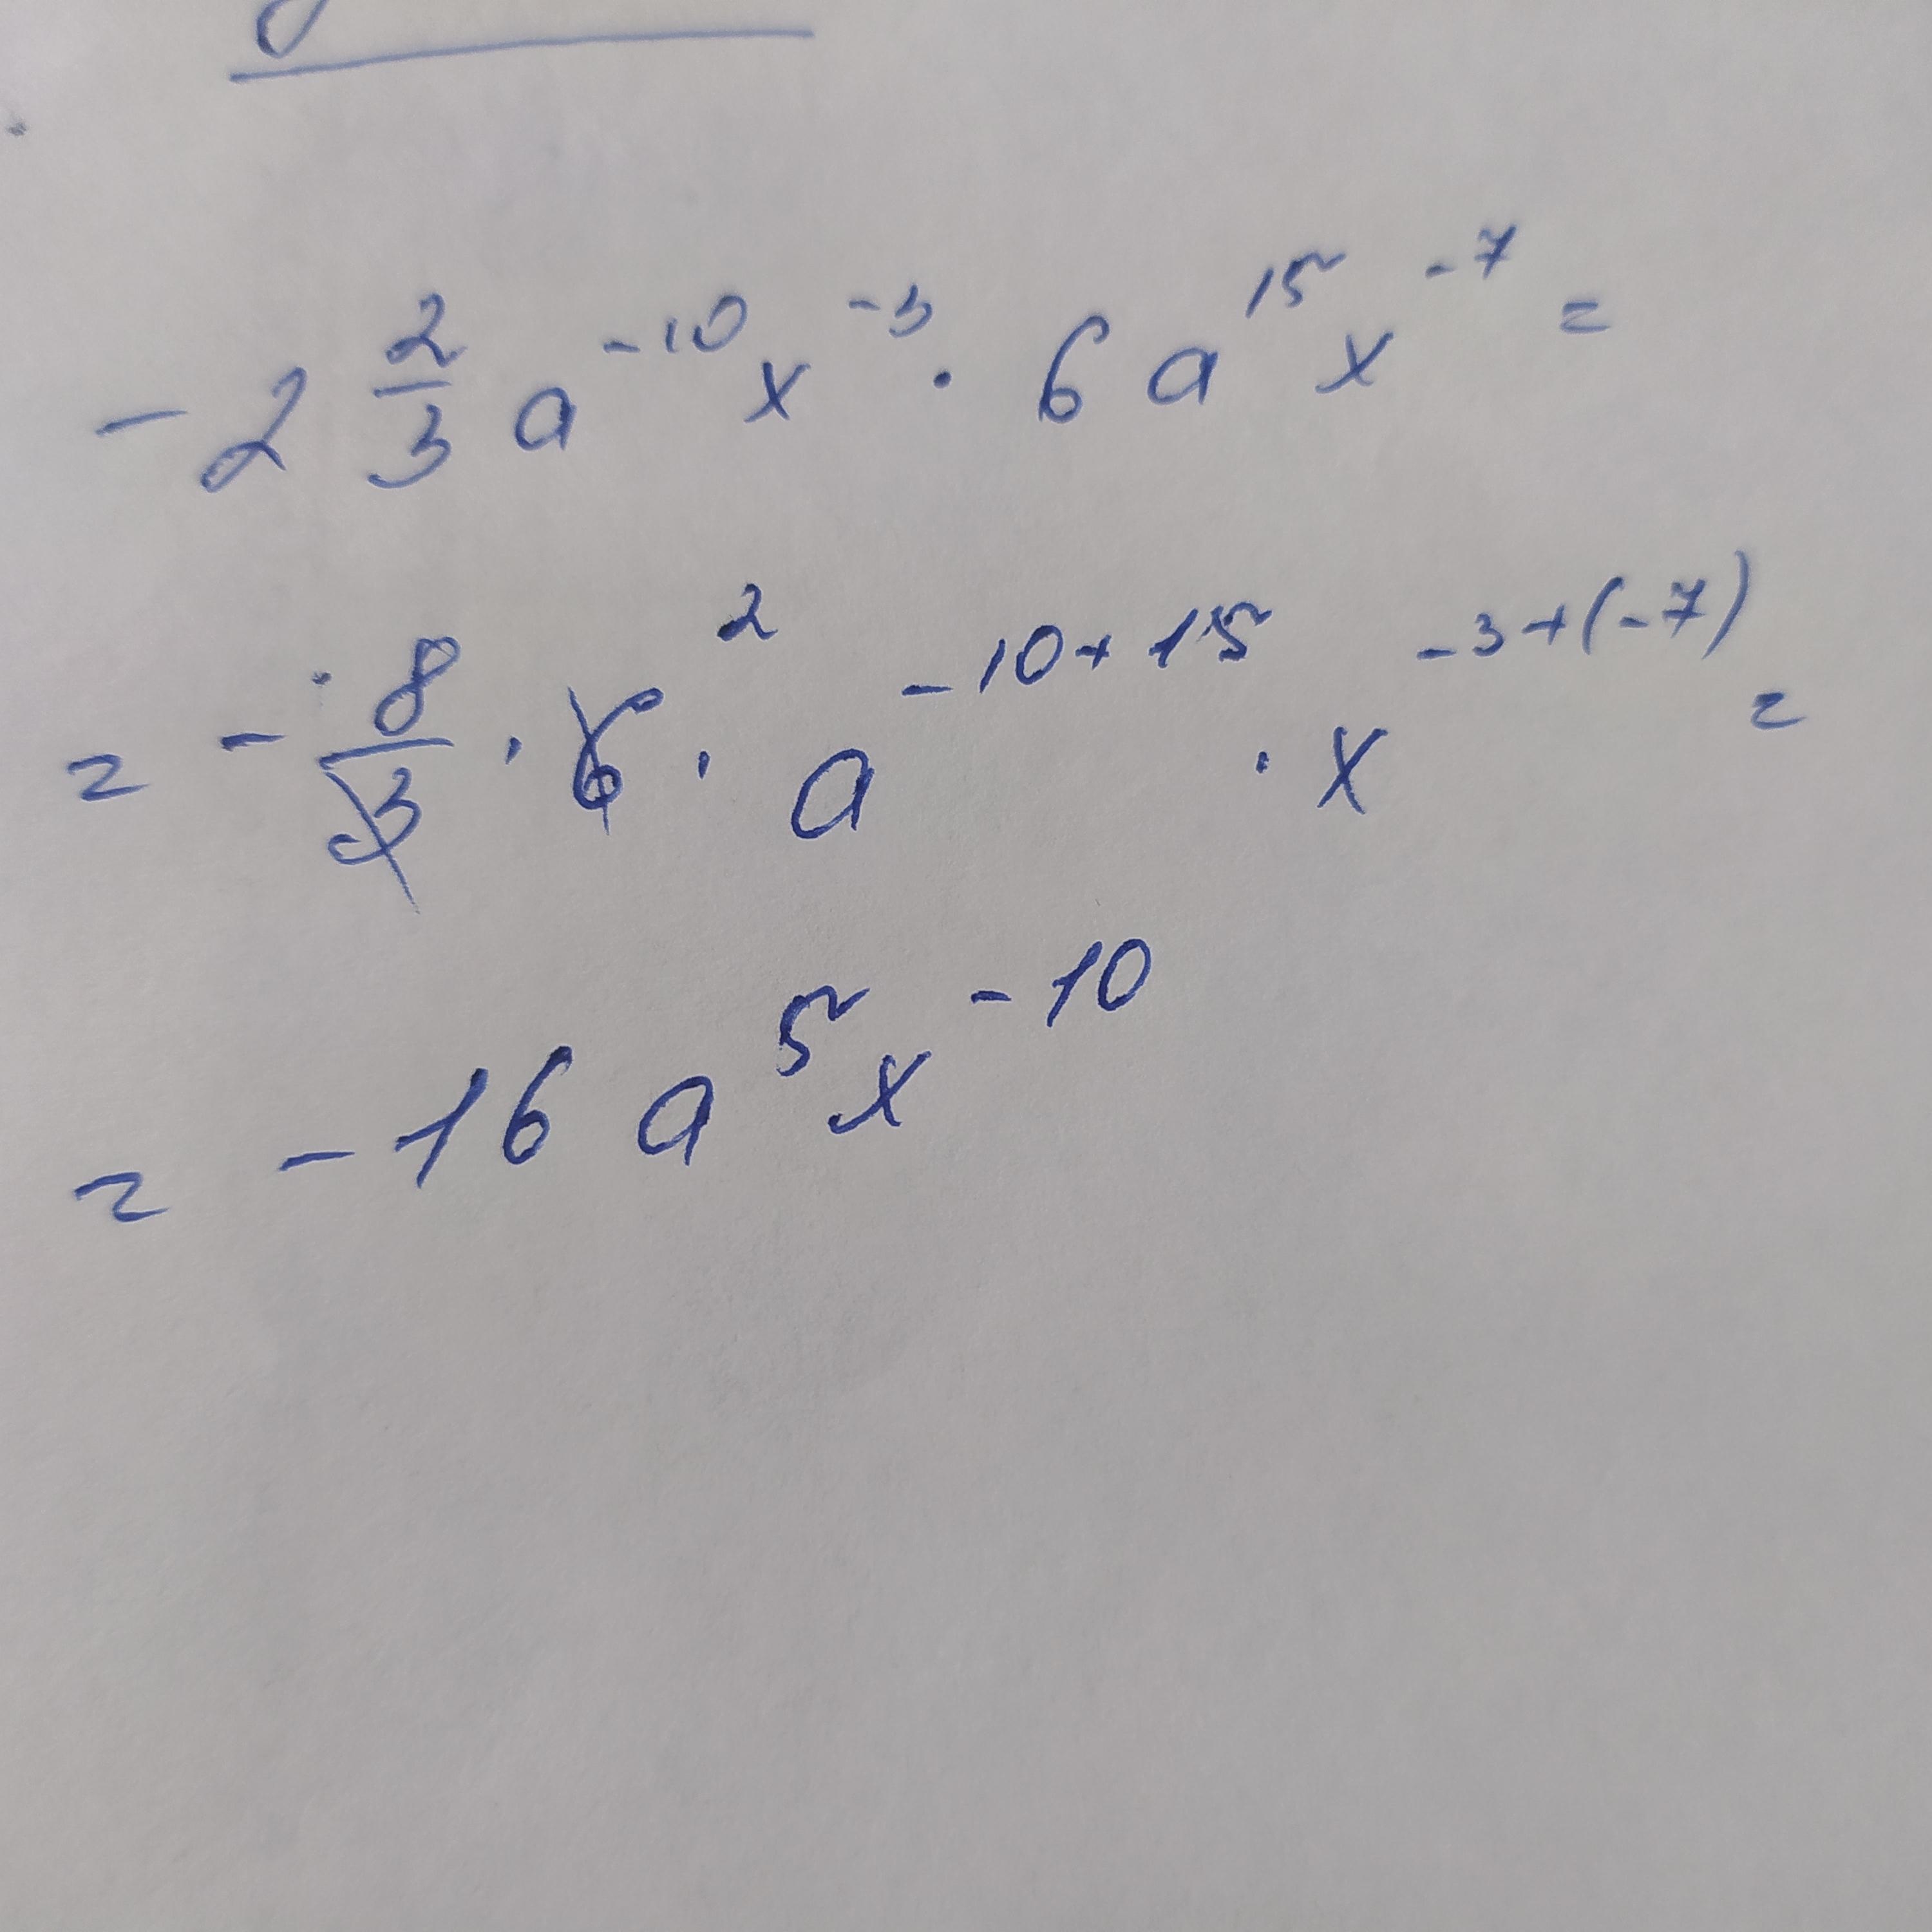 - 2 2/3 a^-10 x^-3 · 6 a^15 x^-7 =
= - 8/3 · 6^2 · a^-10+15 · x^-3+(-7) =
= - 16 a^5 x^-10